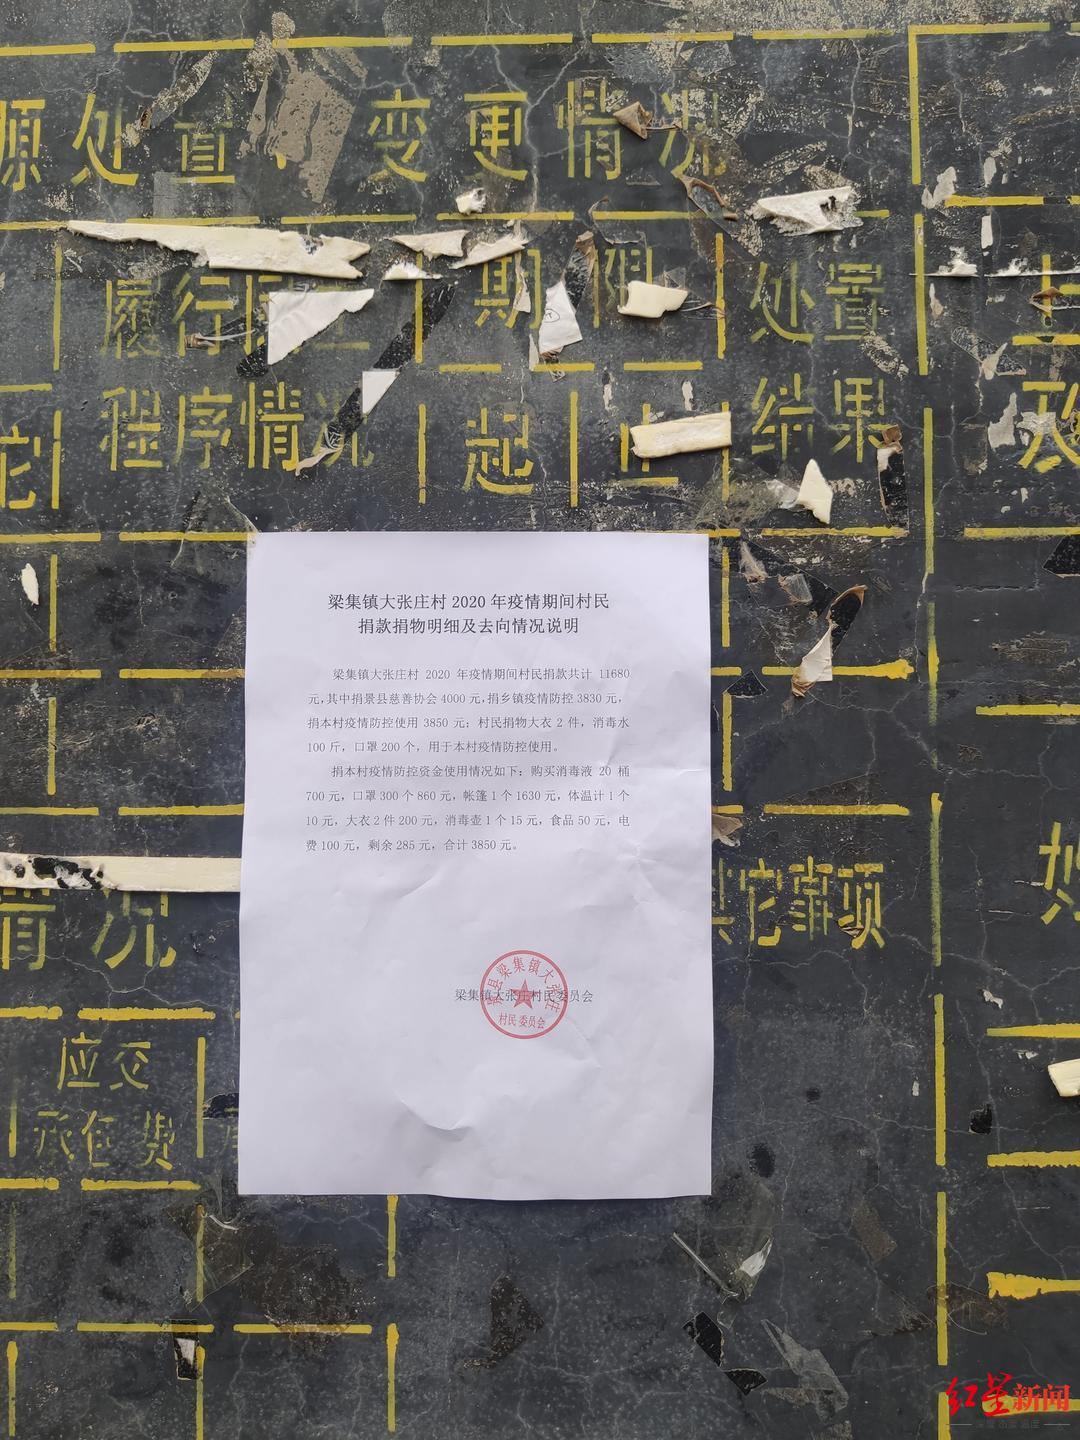 源处置 变更情况
履行
期限
处置
程序情况
起止
结果
梁集镇大张庄村 2020 年疫情期间村民
捐款捐物明细及去向情况说明
梁集镇大张庄村 2020 年疫情期间村民捐款共计 11680
元,其中捐景县慈善协会 4000 元,捐乡镇疫情防控 3830 元,
捐本村疫情防控使用 3850 元；村民捐物大衣 2 件，消毒水
100 斤，口罩 200 个，用于本村疫情防控使用。
捐本村疫情防控资金使用情况如下：购买消毒液 20 桶
700 元，口罩 300 个 860 元，帐篷 1 个 1630 元，体温计 1 个
10 元，大衣 2 件 200 元，消毒壶 1 个 15 元，食品 50 元，电
费 100 元，剩余 285 元，合计 3850 元。
梁集镇大张庄村民委员会
景县梁集镇大张庄
村民委员会
情况
其它事项
应交
承包费
红星新闻